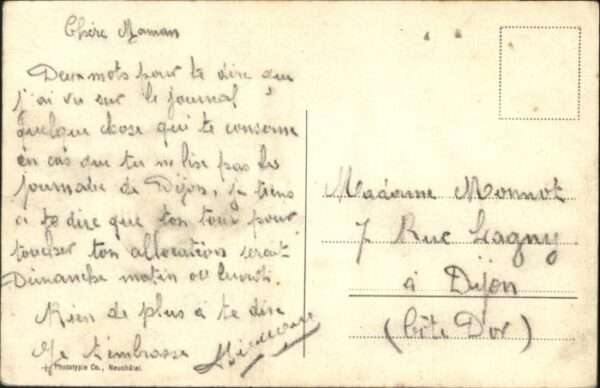 Chère Maman
Deux mots pour te dire que
j'ai vu sur le journal
quelque chose qui te conserne
en cas que tu ne lise pas les
journaux de Dijon, je tiens
a te dire que ton tour pour
toucher ton allocations serait
Dimanche matin ou lundi.
Rien de plus a te dire
Je t'embrasse
Phototypie Co., Neuchâtel.
Madame Monnot
7 Rue Lagny
à Dijon
(Côte D'or)